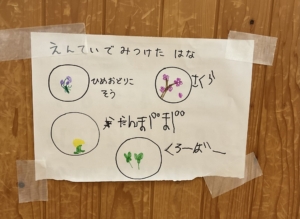 えんていでみつけた はな
ひめおどりこ
そう
さくら
くろーばー